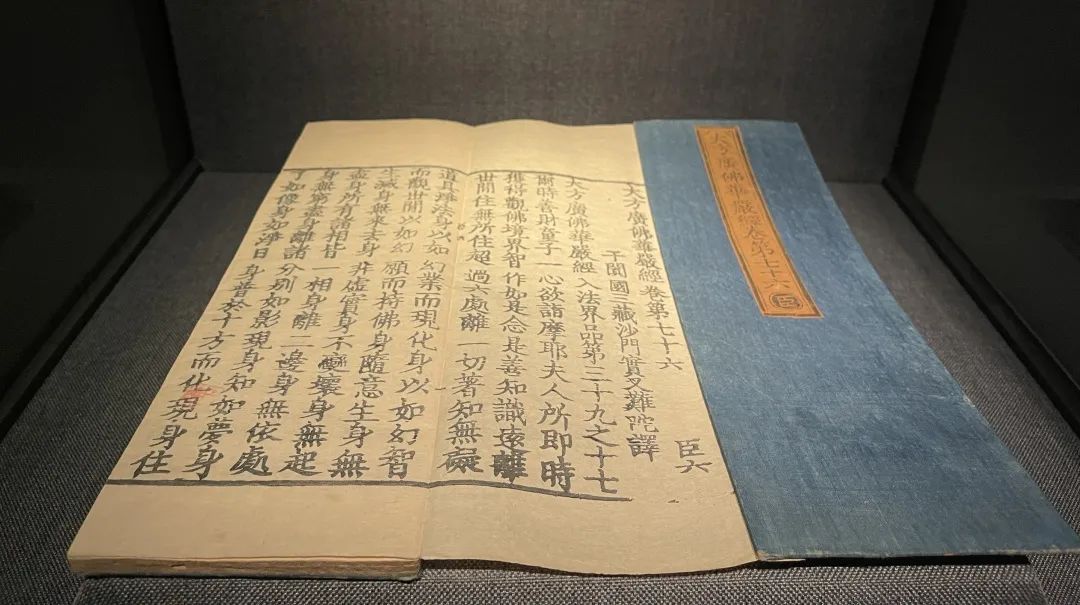 大方廣佛華嚴經卷第七十六 臣
大方廣佛華嚴經 卷第七十六 臣六
于闐國三藏沙門實叉難陀譯
大方廣佛華嚴經 入法界品第三十九之十七
爾時善財童子一心欲詣摩耶夫人所即時
獲得觀佛境界智作如是念是善知識遠離
世間住無所住超過六處離一切著知無礙
道具淨法身以如幻業而現化身以如幻智
而觀世間以如幻願而持佛身隨意生身無
生滅身無來去身非虛實身不變壞身無起
盡身所有諸相皆一相身離二邊身無依處
身無窮盡身離諸分別如影現身知如夢身
了如像身如淨日身普於十方而化現身住